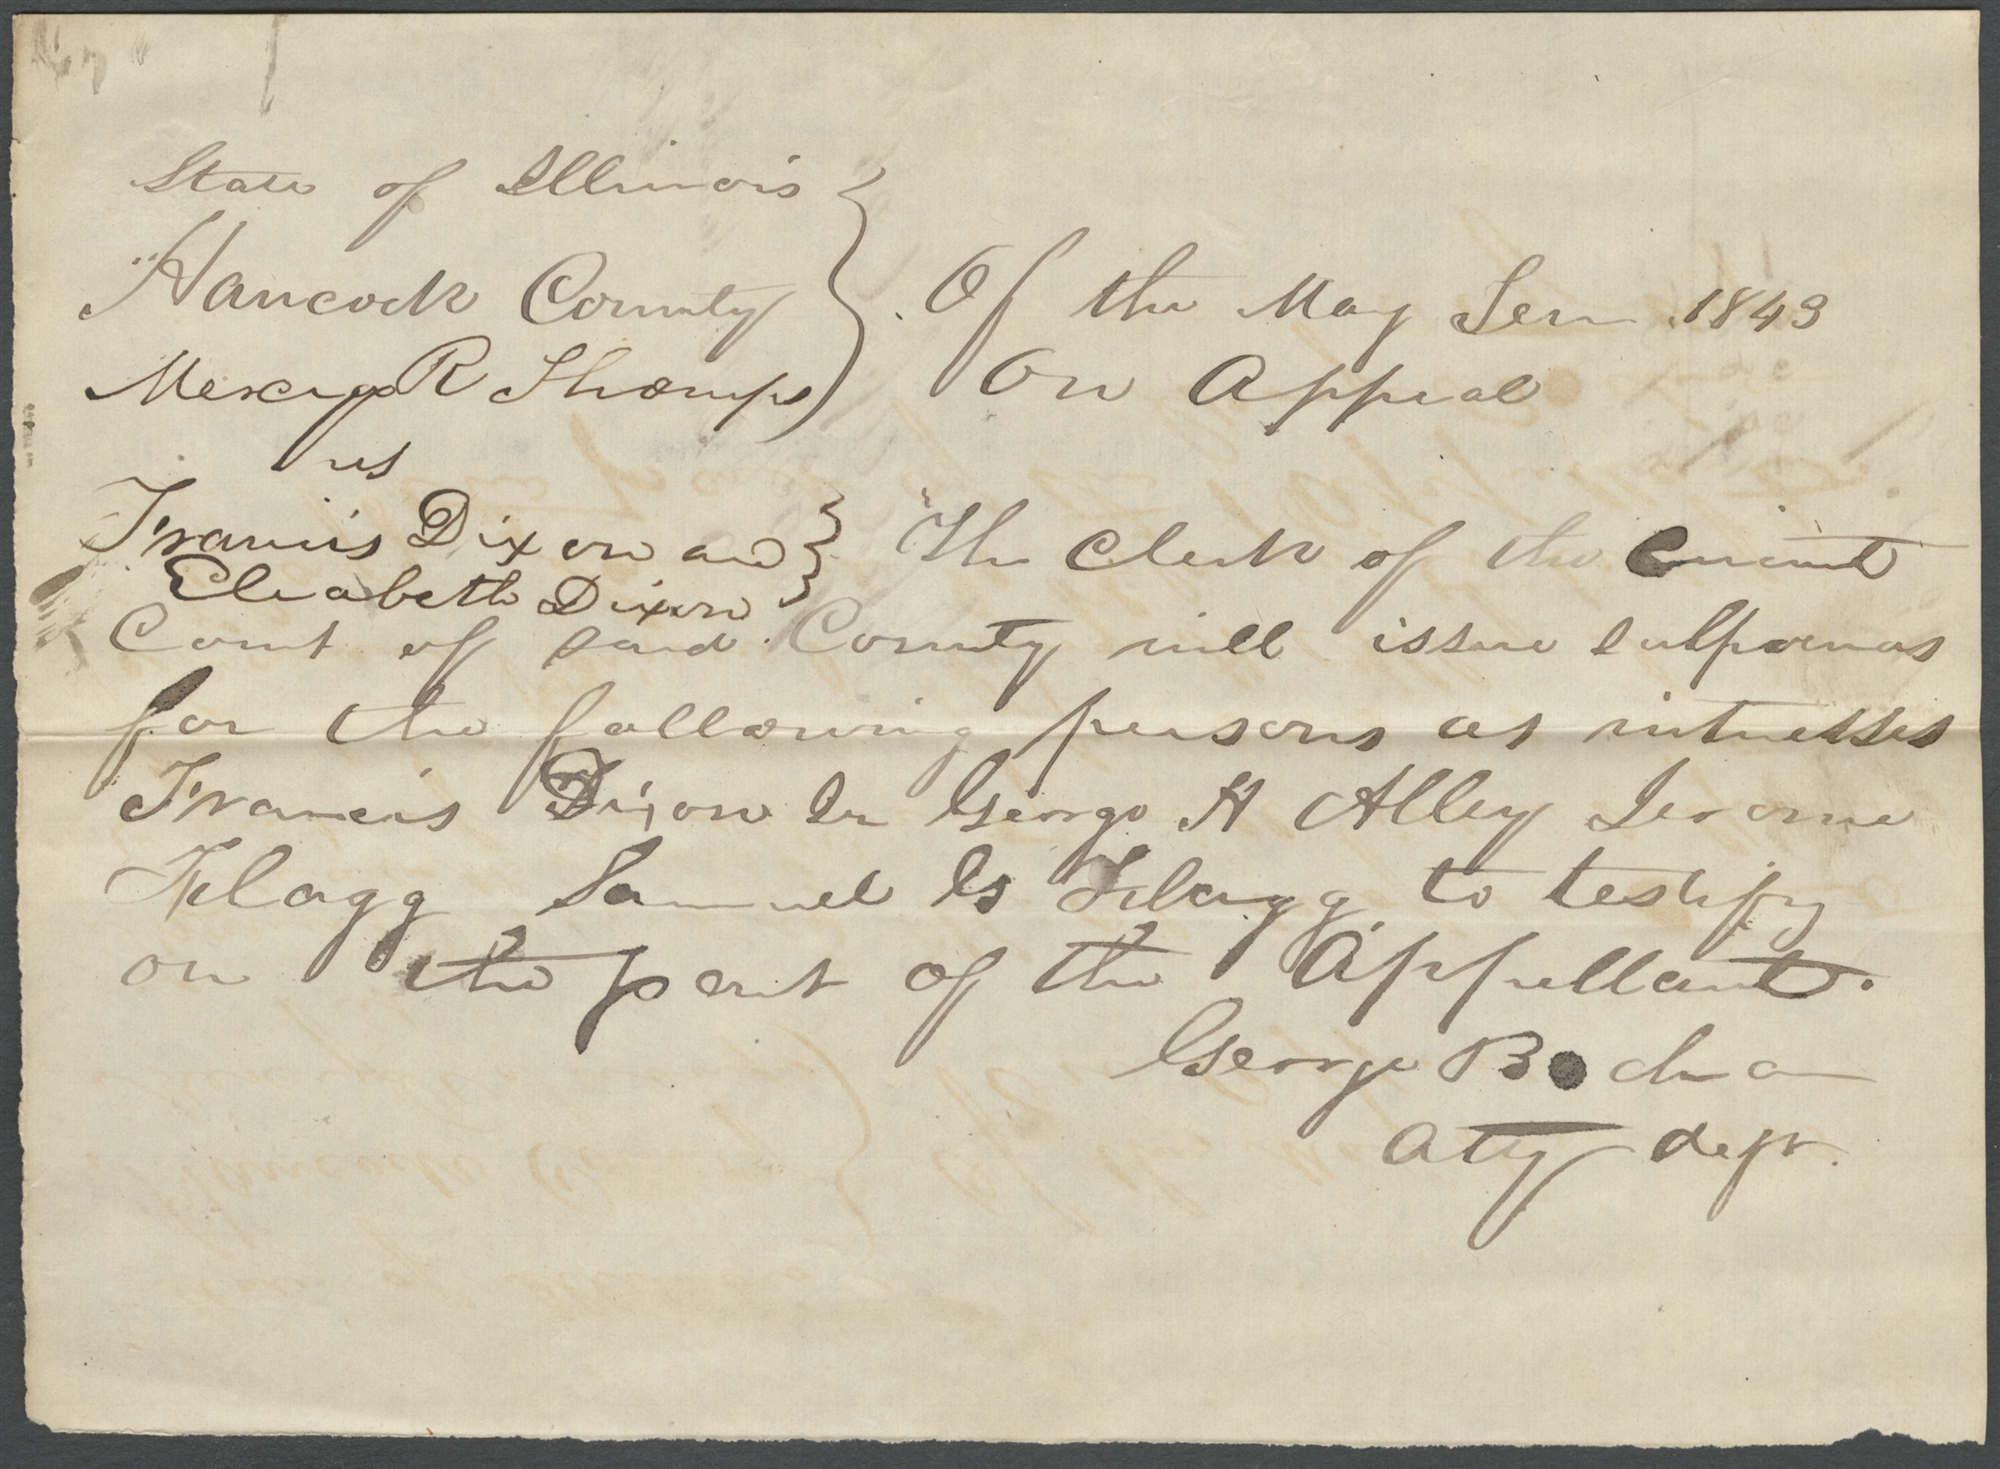 State of Illinois
Hancock County } Of the May Term 1843
Mercy R Thomps } On Appeal
vs
Francis Dixon and } The Clerk of the Circuit
Elizabeth Dixon
Court of said County will issue subpoenas
for the following persons as witnesses
Francis Dixon Sr George H Alley Jerome
Flagg Samuel G Flagg to testify
on the part of the Appellant.
George
Atty deft.